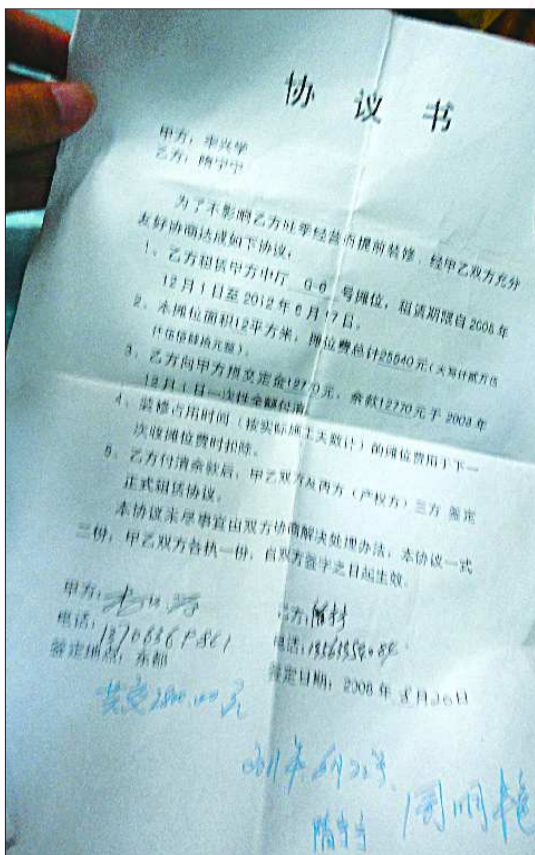 协 议 书
甲方：李兴学
乙方：隋守宁
为了不影响乙方旺季经营而提前装修，经甲乙双方充分
友好协商达成如下协议：
1、乙方租赁甲方中厅 G-6 号摊位，租请期限自2008年
12月1日至2012年6月17日。
2、本摊位面积12平方米，摊位费总计25540元（大写贰万伍
仟伍佰肆拾元整）。
3、乙方向甲方预交定金12770元，余款12770元于2008年
12月1日一次性全额付清
4、装修占用时间（按实际施工天数计）的摊位费用于下一
次收摊位费时扣除。
5、乙方付清余款后，甲乙双方及丙方（产权方）三方 签定
正式租赁协议。
本协议未尽事宜由双方协商解决处理办法，本协议一式
二份，甲乙双方各执一份，自双方签字之日起生效。
甲方：
乙方：
电话：
电话：
签定地点：东都
签定日期：2008年8月26日
共交
年6月23号
隋守宁
周明艳